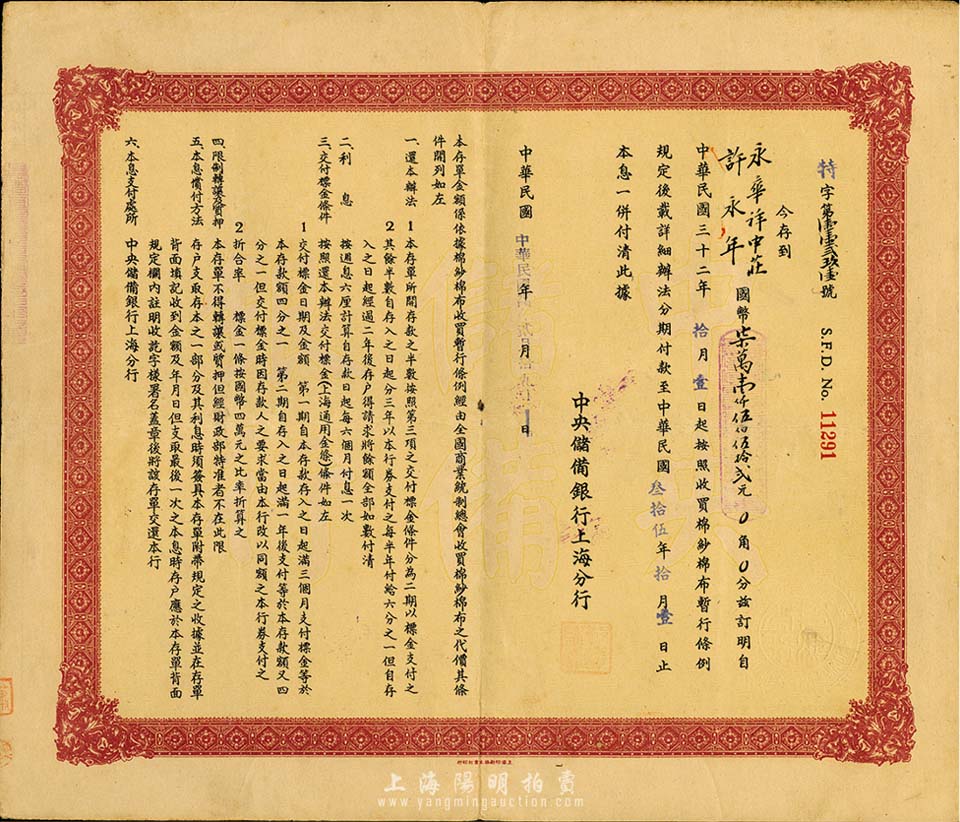 特字第壹壹貳玖壹號 S.F.D. No. 11291
今存到
永華祥申莊
許永年 國幣柒萬壹仟伍佰伍拾貳元0角0分茲訂明自
中華民國三十二年拾月壹日起按照收買棉紗棉布暫行條例
規定後載詳細辦法分期付款至中華民國叁拾伍年拾月壹日止
本息一併付清此據
中央儲備銀行上海分行
中華民國 年 月 日
本存單金額係依據棉紗棉布收買暫行條例經由全國商業統制總會收買棉紗棉布之代價其條
件開列如左
一、還本辦法 1 本存單所開存款之半數按照第三項之交付標金條件分為二期以標金支付之
2 其餘半數自存入之日起分三年以本行券支付之每半年付給六分之一但自存
入之日起經過二年後存戶得請求將餘額全部如數付清
二、利息 按週息六厘計算自存款日起每六個月付息一次
三、交付標金條件 按照還本辦法交付標金(上海通用金條)條件如左
1 交付標金日期及金額 第一期自本存款存入之日起滿三個月支付標金等於
本存款額四分之一 第二期自存入之日起滿一年後支付等於本存款額又四
分之一但交付標金時因存款人之要求當由本行改以同額之本行券支付之
2 折合率 標金一條按國幣四萬元之比率折算之
四、限制轉讓及質押 本存單不得轉讓或質押但經財政部特准者不在此限
五、本息償付方法 存戶支取存本之一部分及其利息時須簽具本存單附帶規定之收據並在存單
背面填記收到金額及年月日但支取最後一次之本息時存戶應於本存單背面
規定欄內註明收訖字樣署名蓋章後將該存單交還本行
六、本息支付處所 中央儲備銀行上海分行
上海陽明拍賣
www.yangmingauction.com